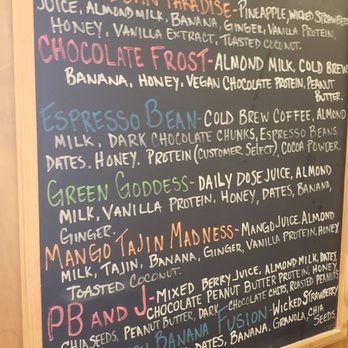 PARADISE-PINEAPPLE, WICKED STRAWBERRY
JUICE, ALMOND MILK, BANANA, GINGER, VANILLA PROTEIN,
HONEY, VANILLA EXTRACT, TOASTED COCONUT.
CHOCOLATE FROST-ALMOND MILK, COLD BREW
BANANA, HONEY, VEGAN CHOCOLATE PROTEIN, PEANUT
BUTTER.
ESPRESSO BEAN-COLD BREW COFFEE, ALMOND
MILK, DARK CHOCOLATE CHUNKS, ESPRESSO BEANS
DATES, HONEY, PROTEIN (CUSTOMER SELECT), COCOA POWDER.
GREEN GODDESS-DAILY DOSE JUICE, ALMOND
MILK, VANILLA PROTEIN, HONEY, DATES, BANANA,
GINGER.
MANGO TAJIN MADNESS-MANGO JUICE, ALMOND
MILK, TAJIN, BANANA, GINGER, VANILLA PROTEIN, HONEY
TOASTED COCONUT.
PB AND J-MIXED BERRY JUICE, ALMOND MILK, DATES
CHOCOLATE PEANUT BUTTER PROTEIN, HONEY,
CHIA SEEDS, PEANUT BUTTER, DARK CHOCOLATE CHIPS, ROASTED PEANUTS
BANANA FUSION-WICKED STRAWBERRY
DATES, BANANA, GRANOLA, CHIA
SEEDS.